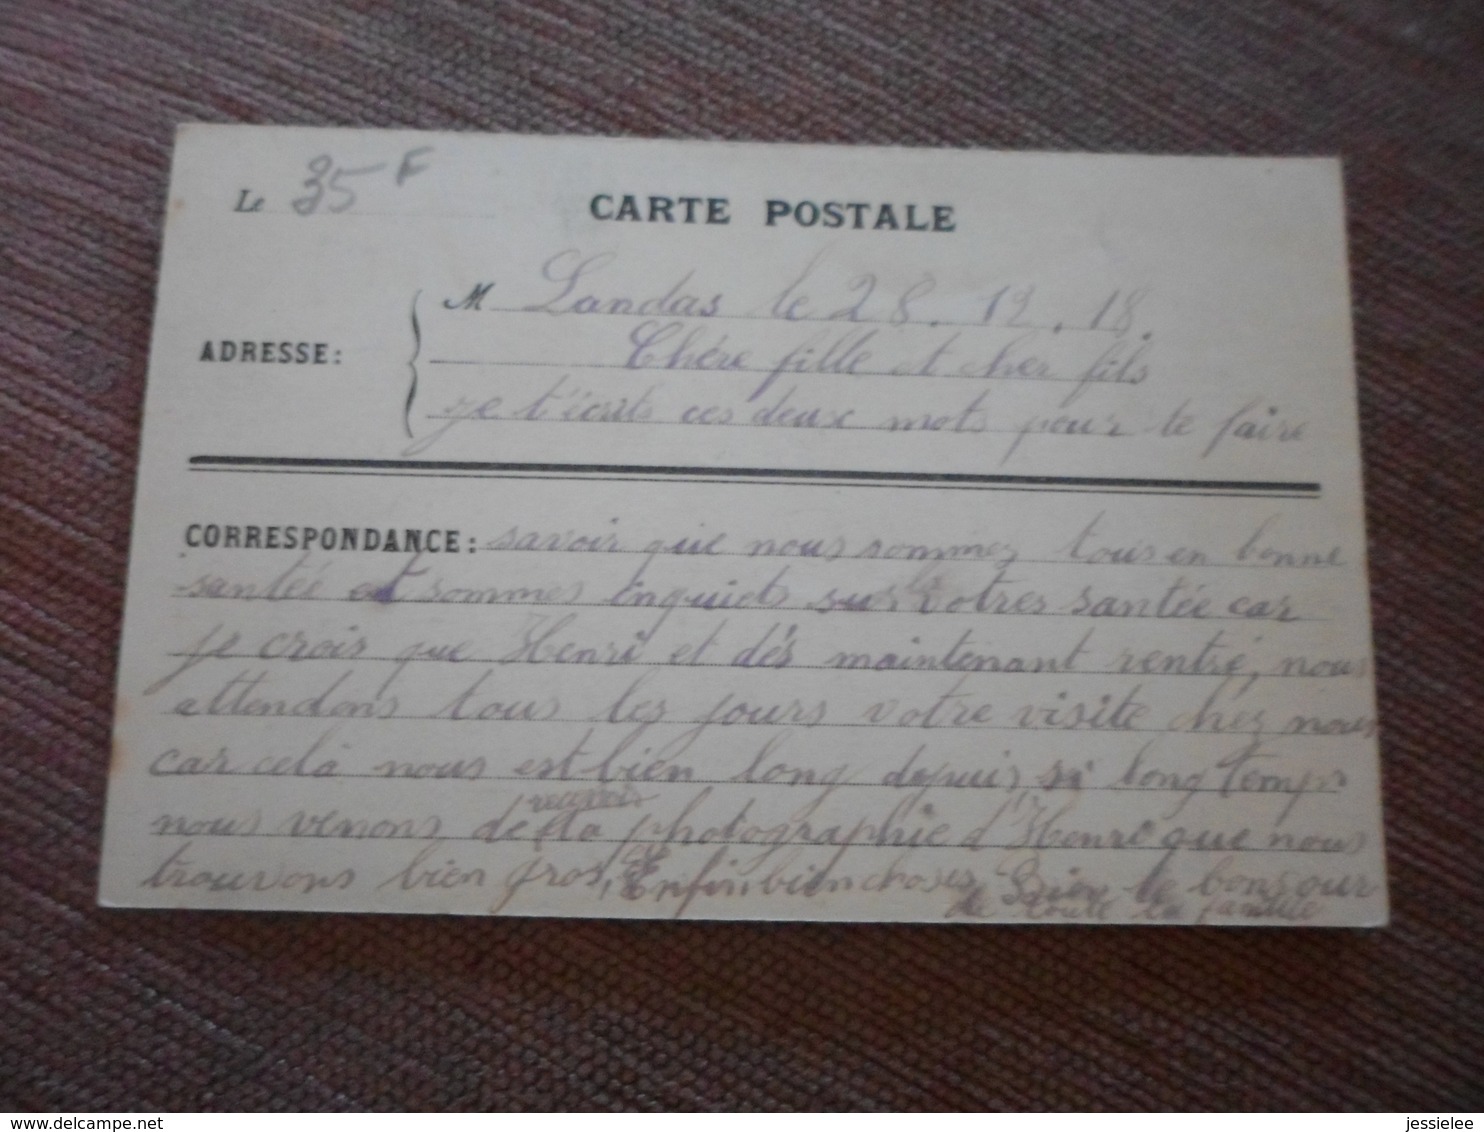 Le 35 F
CARTE POSTALE
M Landas le 28.12.18.
ADRESSE:
Chére fille et cher fils
je t'écrits ces deux mots pour te faire
CORRESPONDANCE: savoir que nous sommez tous en bonne
santée et sommes inquiets sur votres santée car
je crois que Henri et dés maintenant rentré, nous
attendons tous les jours votre visite chez nous
car celà nous est bien long depuis si long temps
recevoir
nous venons de la photographie d'Henri que nous
trouvons bien gros, Enfin, bien choses Bien le bonjour
de toute la famille
delcampe.net
jessielee